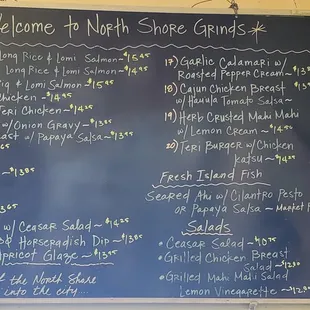 elcome to North Shore Grinds
ong Rice & Lomi Salmon ~ $15.95
Long Rice & Lomi Salmon ~ $14.95
ig & Lomi Salmon ~ $15.95
Chicken ~ $14.95
Teri Chicken ~ $14.25
w/ Onion Gravy ~ $13.85
ast w/ Papaya Salsa ~ $13.95
~ $13.85
w/ Ceasar Salad ~ $14.25
Horseradish Dip ~ $13.85
Apricot Glaze ~ $13.95
the North Shore
into the city....
17) Garlic Calamari w/
Roasted Pepper Cream ~
18) Cajun Chicken Breast
w/ Hauula Tomato Salsa ~
19) Herb Crusted Mahi Mahi
w/ Lemon Cream ~ $14.50
20) Teri Burger w/ Chicken
Katsu ~ $14.25
Fresh Island Fish
Seared Ahi w/ Cilantro Pesto
or Papaya Salsa ~ Market
Salads
• Ceasar Salad ~ $10.75
• Grilled Chicken Breast
Salad ~ $12.50
• Grilled Mahi Mahi Salad
Lemon Vinegarette ~